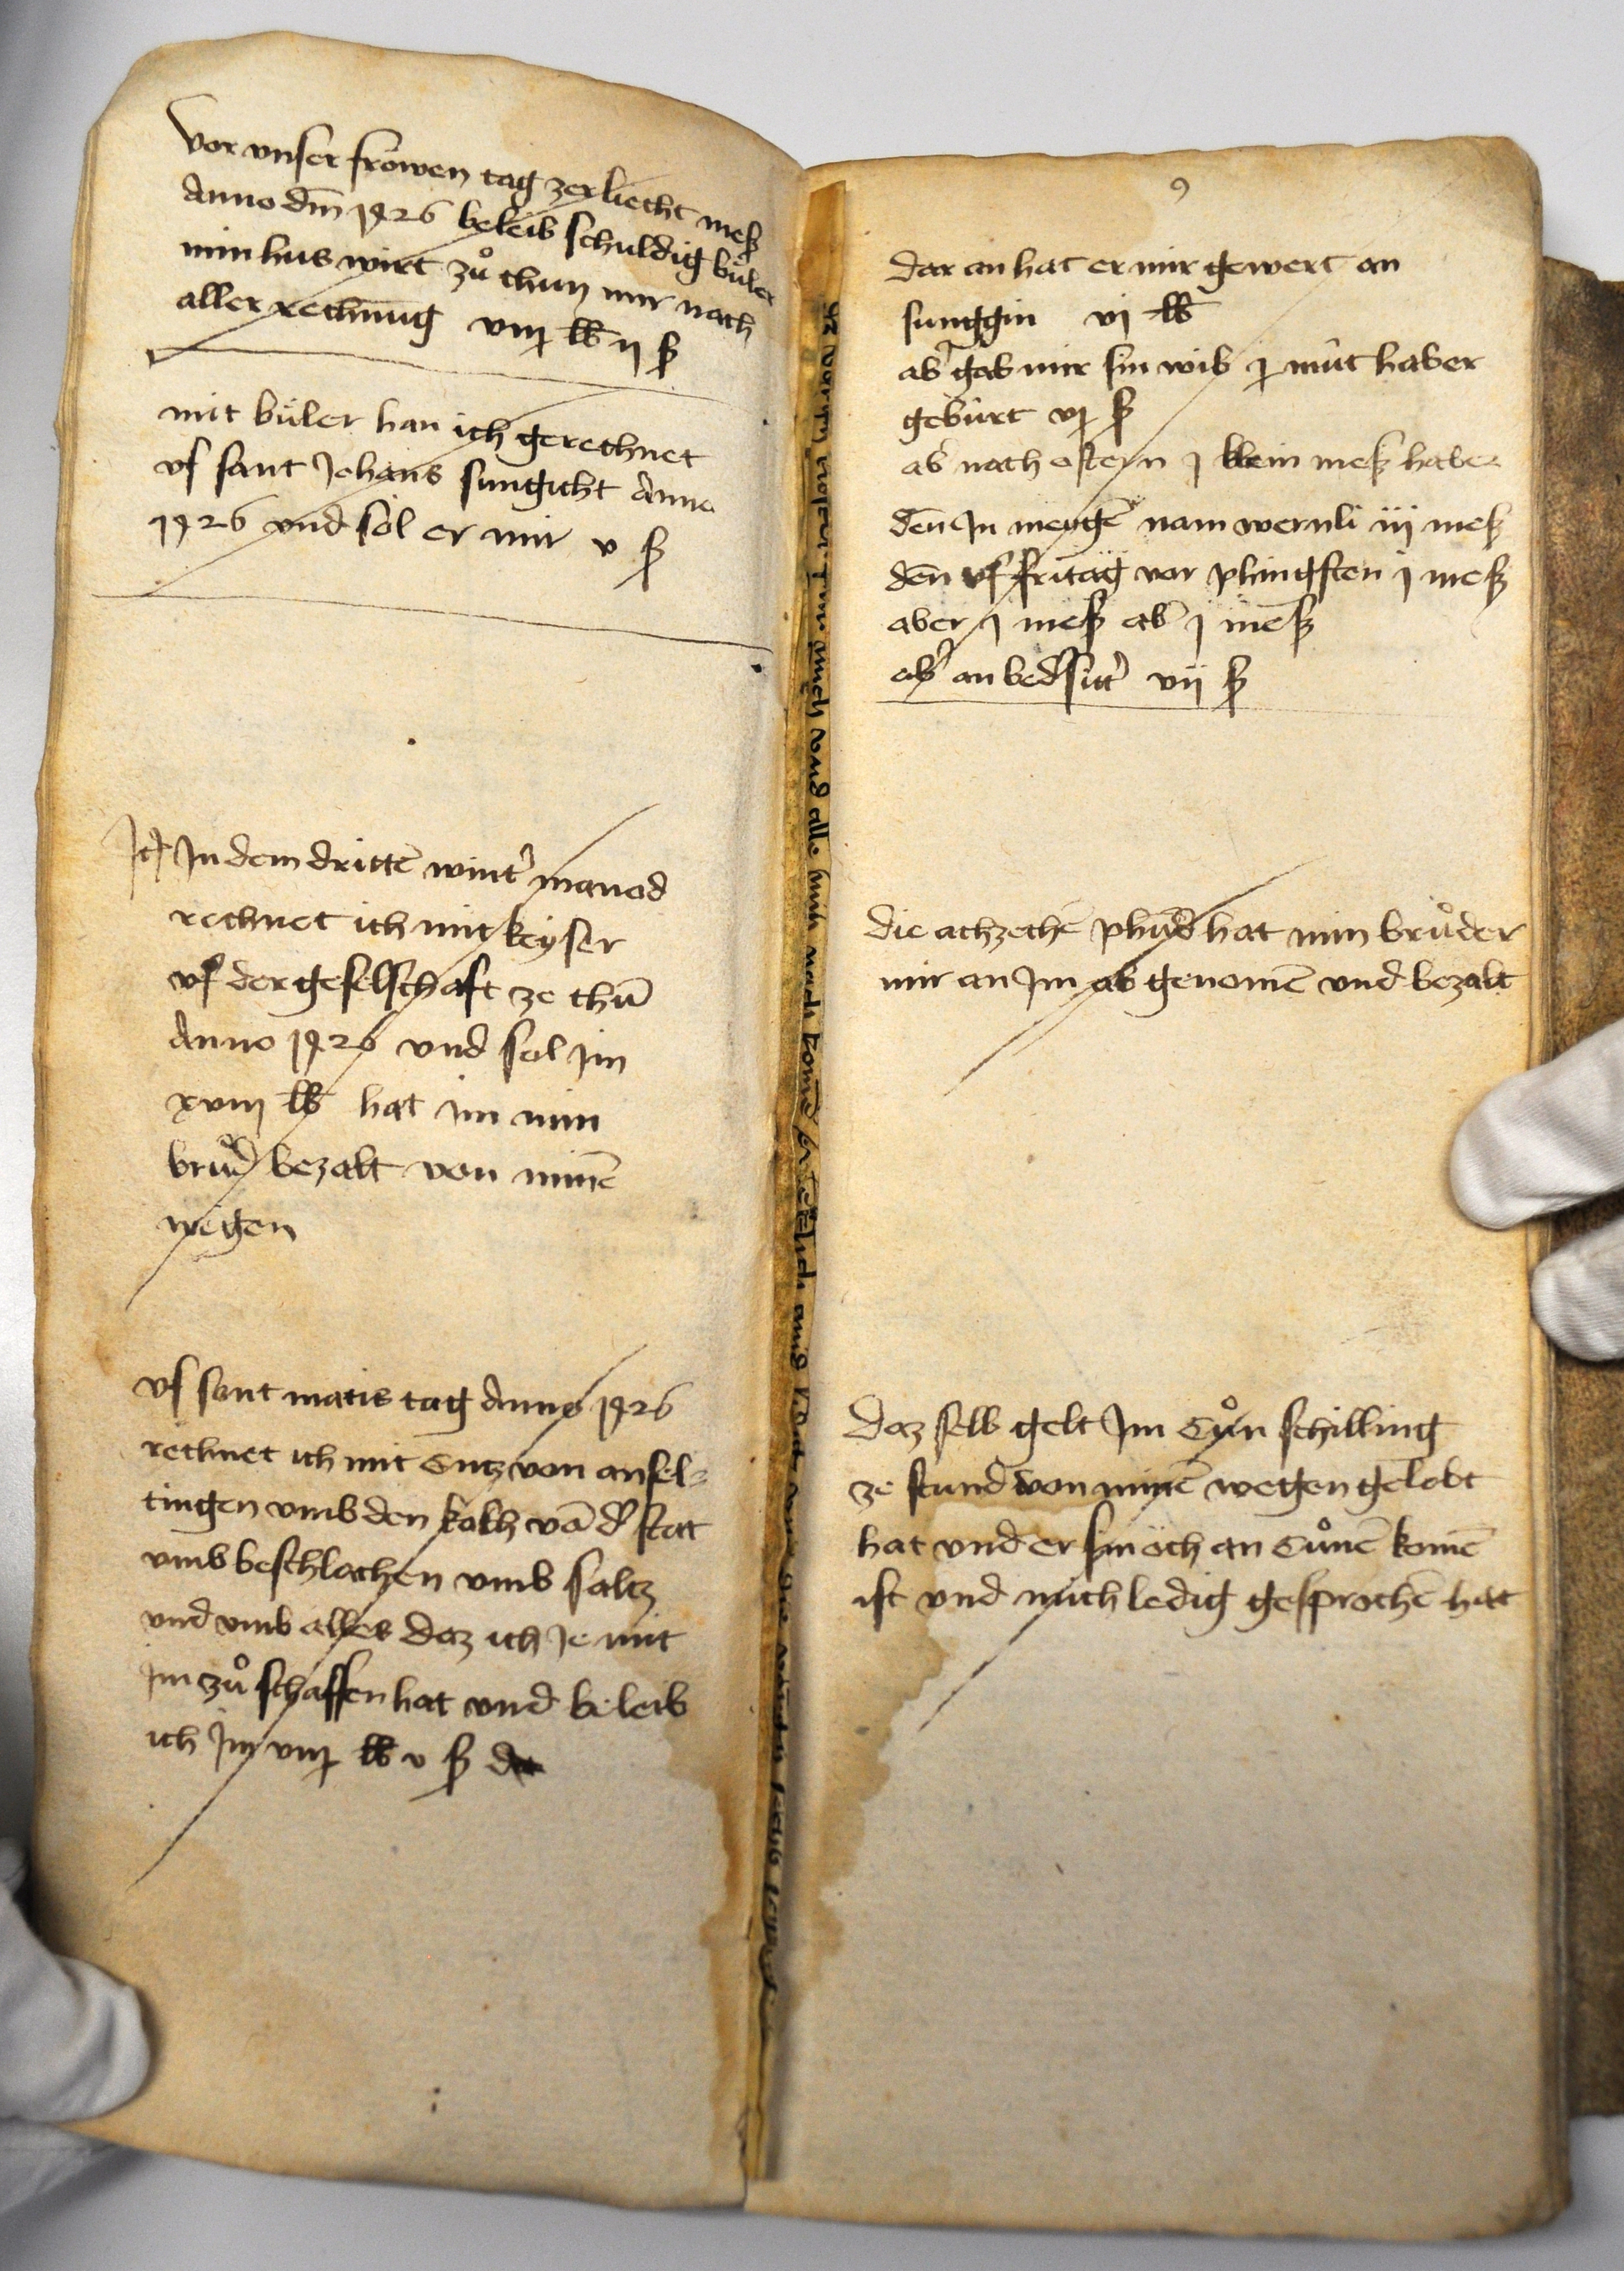 vor vnser frowen tag zer liecht mesß
Anno dm̄ 1426 beleib schuldig bůler
min hus wirt zů thun mir nach
aller rechnūg viij lb ij ß
mit bůler han ich gerechnet
vf sant Johans sungicht Anno
1426 vnd sol er mir v ß
It In dem dritte̅ wint' manod
rechnet ich mit keyser
vf der geselschaft ze thū
Anno 1426 vnd sol im
xviij lb hat im min
brůd' bezalt von mine̅
wegen
vf sant matis tag Anno 1426
rechnet ich mit Cuntz von ansel-
tingen vmb den kalch vō d' stat
vmb beschlachen vmb saltz
vnd vmb alles daz ich Je mit
im zů schaffen hat vnd beleib
ich Jm viij lb v ß
9
dar an hat er mir gewert an
sunggin vj lb
ab' gab mir sin wib j műt haber
gebürt vj ß
ab nach ostern j klein mesß haber
den̄ In menge̅ nam wernli iij mesß
den̄ vf fritag vor phingsten j mesß
aber j mesß ab' j mesß
ab' an bed'sit' vij ß
die achzeche̅ phūd hat min brůder
mir an Im ab genome̅ vnd bezalt
daz selb gelt Im Cůn schilling
ze stund von mine̅ wegen gelobt
hat vnd er sin öch an Cůne̅ kome̅
ist vnd mich ledig gesproche̅ hat
vnd alle